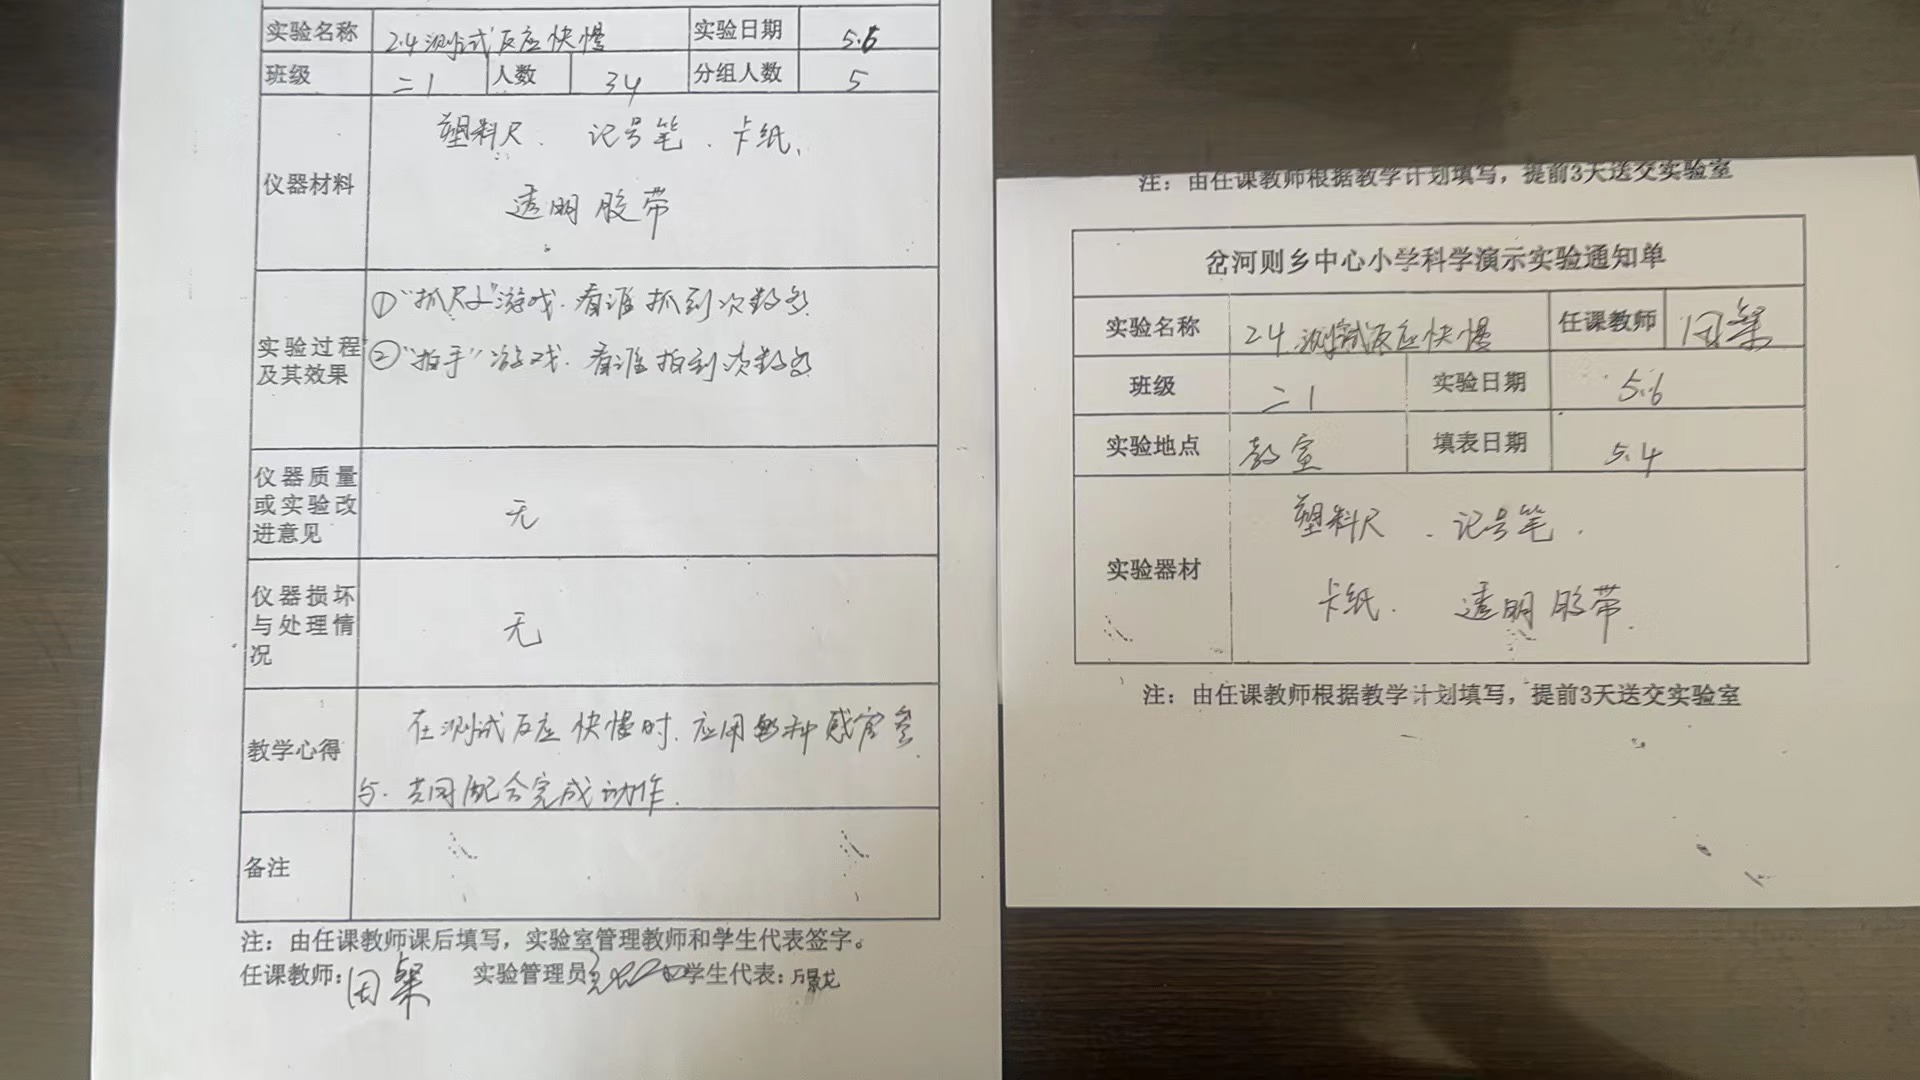 实验名称 2.4 测试反应快慢 实验日期 5.6
班级 二1 人数 34 分组人数 5
仪器材料 塑料尺、记号笔、卡纸、
透明胶带
实验过程及其效果
①“抓尺子”游戏.看谁抓到次数多
②“拍手”游戏.看谁拍到次数多
仪器质量
或实验改
进意见
无
仪器损坏
与处理情
况
无
教学心得
在测试反应快慢时.应用多种感官参
与.共同配合完成动作.
备注
注：由任课教师课后填写，实验室管理教师和学生代表签字。
任课教师： 实验管理员 学生代表：
注：由任课教师根据教学计划填写，提前3天送交实验室
岔河则乡中心小学科学演示实验通知单
实验名称 2.4.测试反应快慢 任课教师
班级 二1 实验日期 5.6
实验地点 教室 填表日期 5.4
实验器材
塑料尺、记号笔.
卡纸. 透明胶带.
注：由任课教师根据教学计划填写，提前3天送交实验室